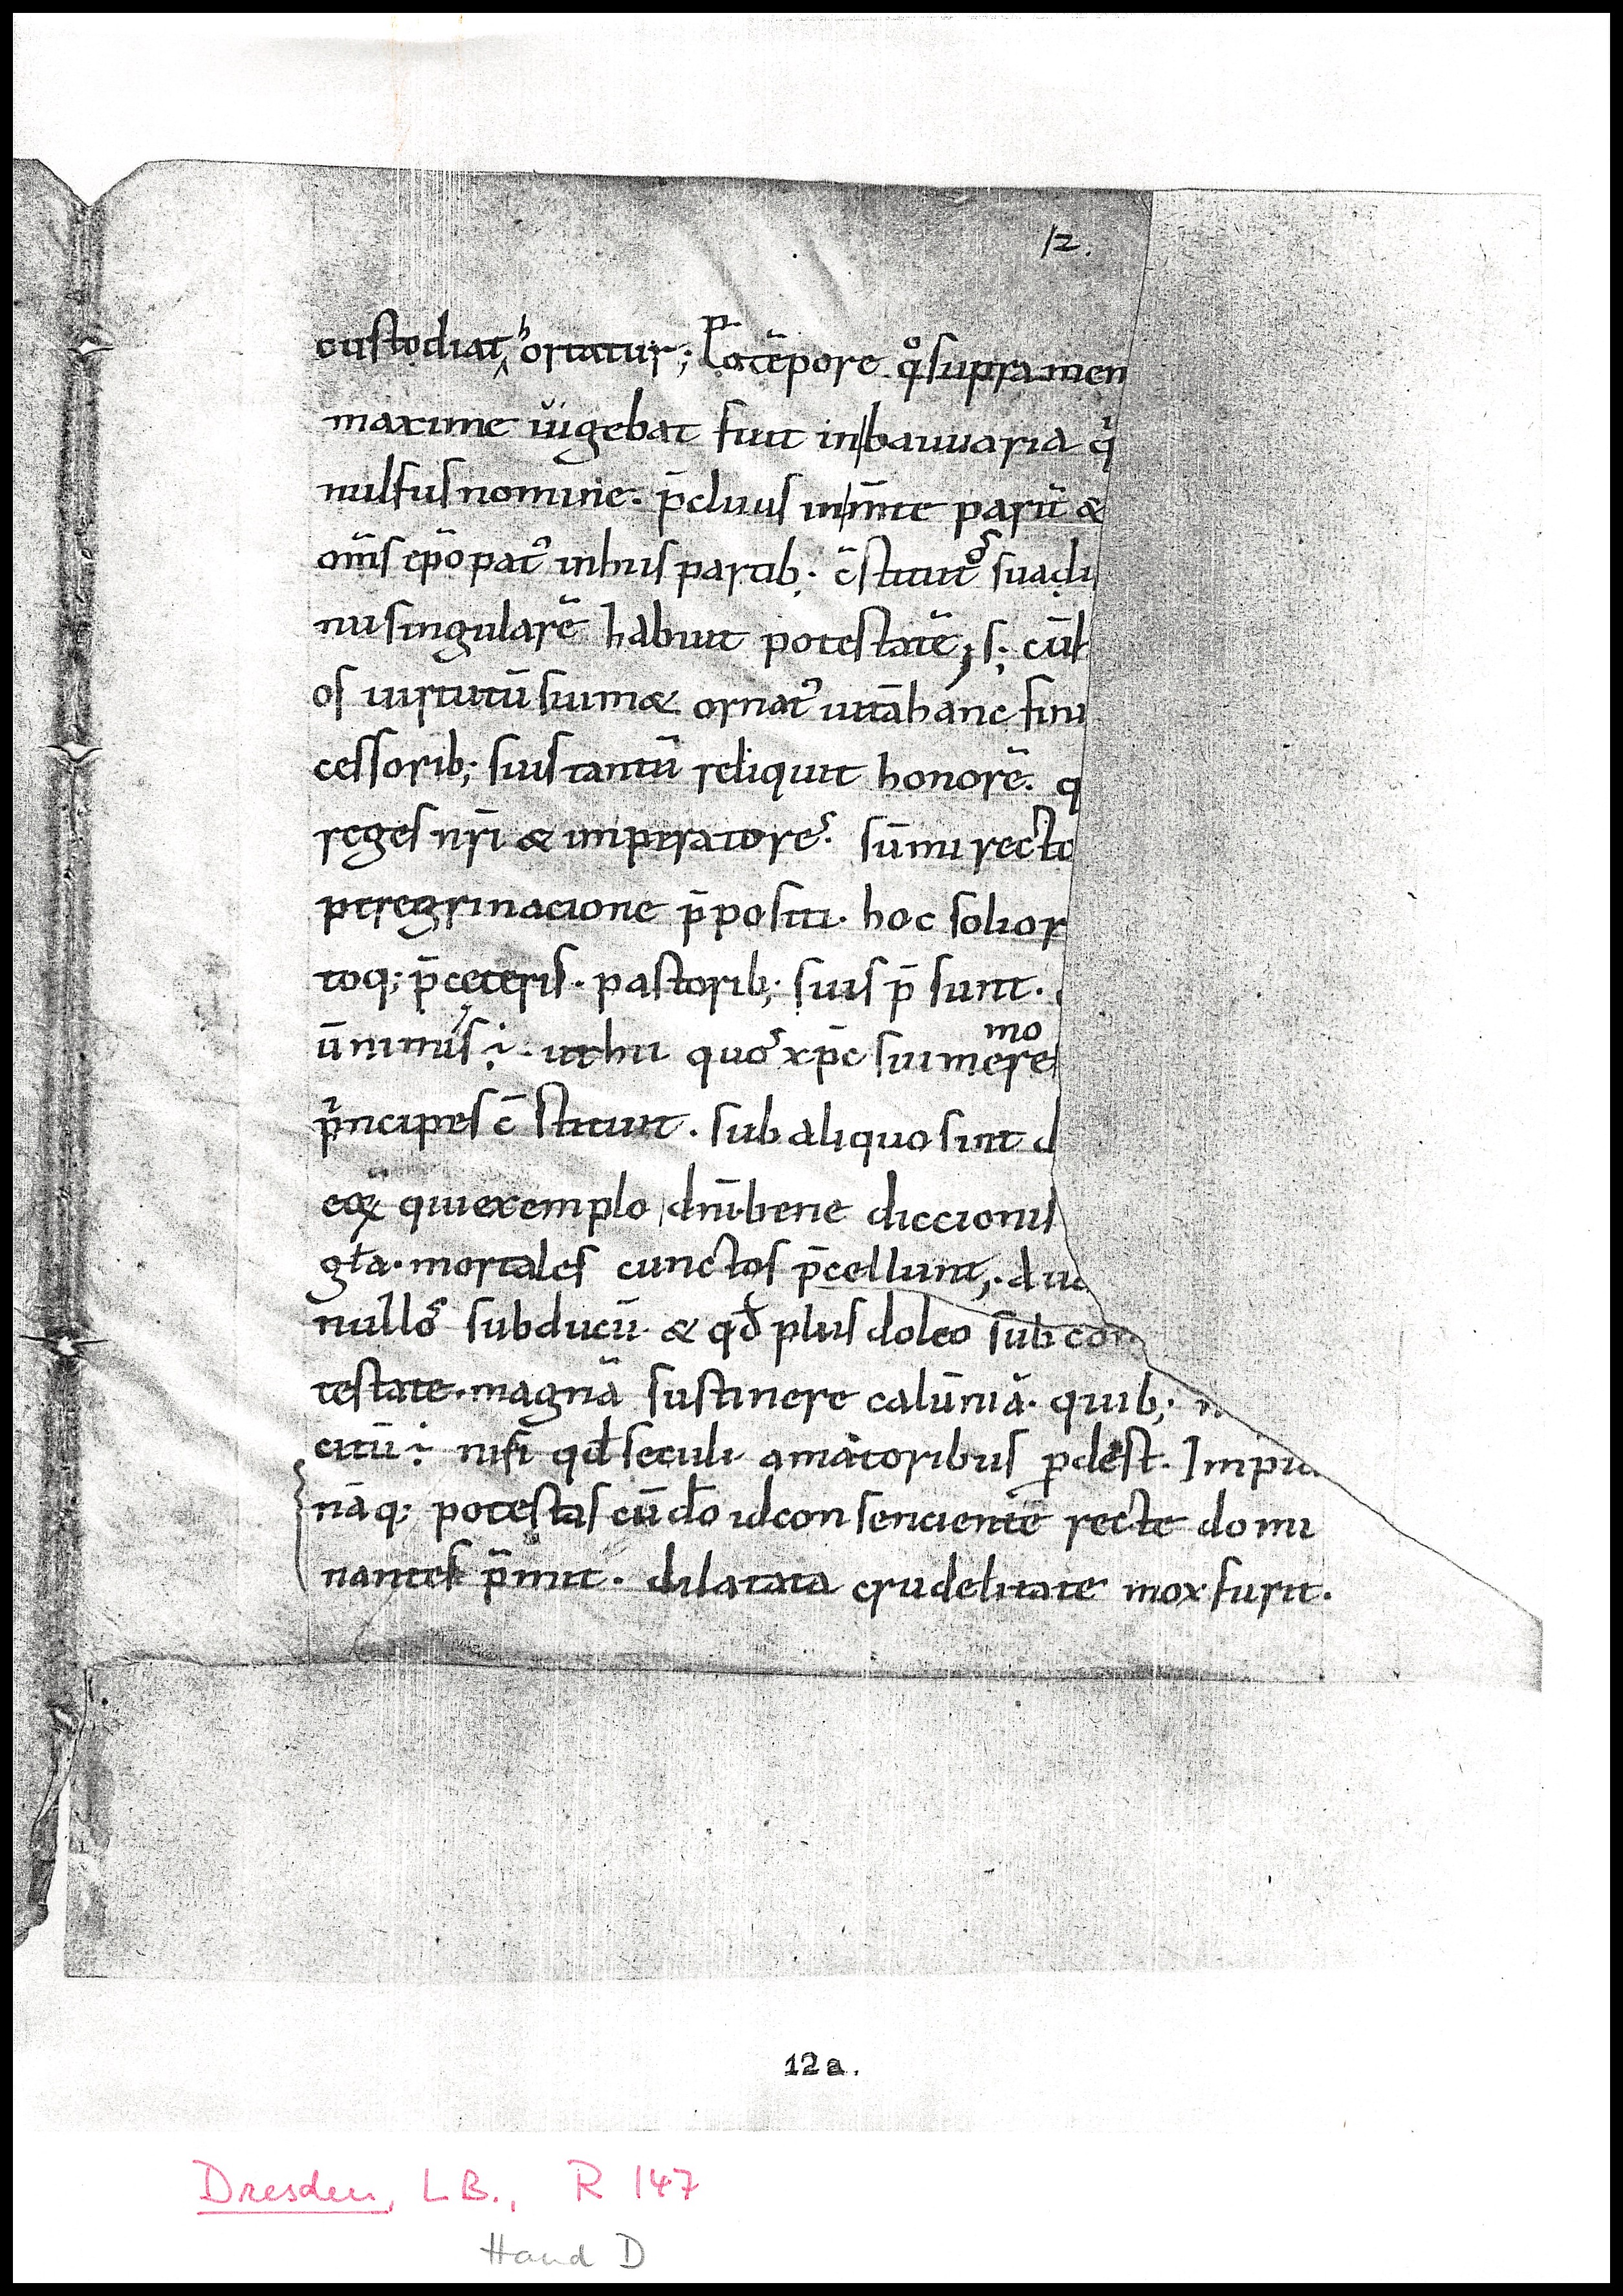 12.
custodiat hortatur; P̄ tēpore qͦ supra men
maxime uigebat fuit in bauuaria q
nulfus nomine. p̄cluus in m̄te parū &
om̄s ep̄opat᾿ in his partib; c̄stitut᾿ os sua di
nu singularē habuit potestatē, s; cūl
os uirtutū suim& ornat᾿ uitā hanc fini
cessorib; suis tantū reliquit honorē. q
reges nr̄i & imperatores. sūmi recto
peregrinacione p̄positi. hoc solio r
toq; p̄ceteris. pastorib; suis p̄ sunt.
ut hii quos xp̄c sui memore
principes c̄stituit. sub aliquo sint d
qui exemplo dn̄i bene diccionis
gl̄a. mortales cunctos p̄cellunt,. au
nullos sub ducū. & qđ plus doleo sub com
testate. magnā sustinere calūniā. quib; n
citū ÷ nisi qđ seculi amatoribus pdest. Inpu
nāq; potestas cū dō id consencientē recte domi
nantes p̄mit. dilatata crudelitate mox furit.
12a.
Dresden, LB., R 147
Hand D